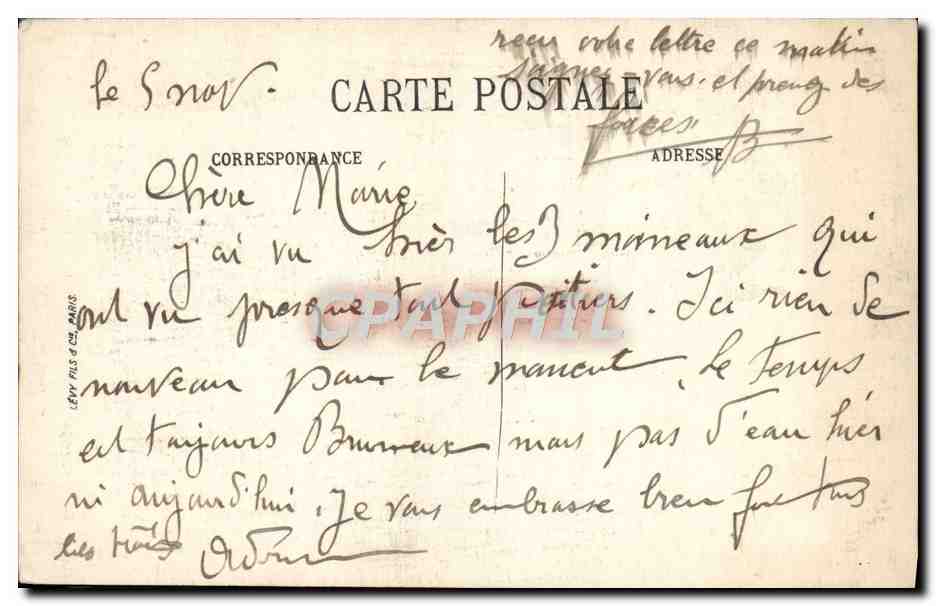 reçu votre lettre ce matin
soignez-vous et prenez des
forces B
le 5 nov.
CARTE POSTALE
CORRESPONDANCE
ADRESSE
Chère Marie
j'ai vu hier les 3 moineaux qui
ont vu presque tout Poitiers. Ici rien de
nouveau pour le moment, le temps
est toujours Brumeux mais pas d'eau hier
ni aujourd'hui, je vous embrasse bien fort tous
les trois
LÉVY FILS & Cie, PARIS.
CPAPHIL